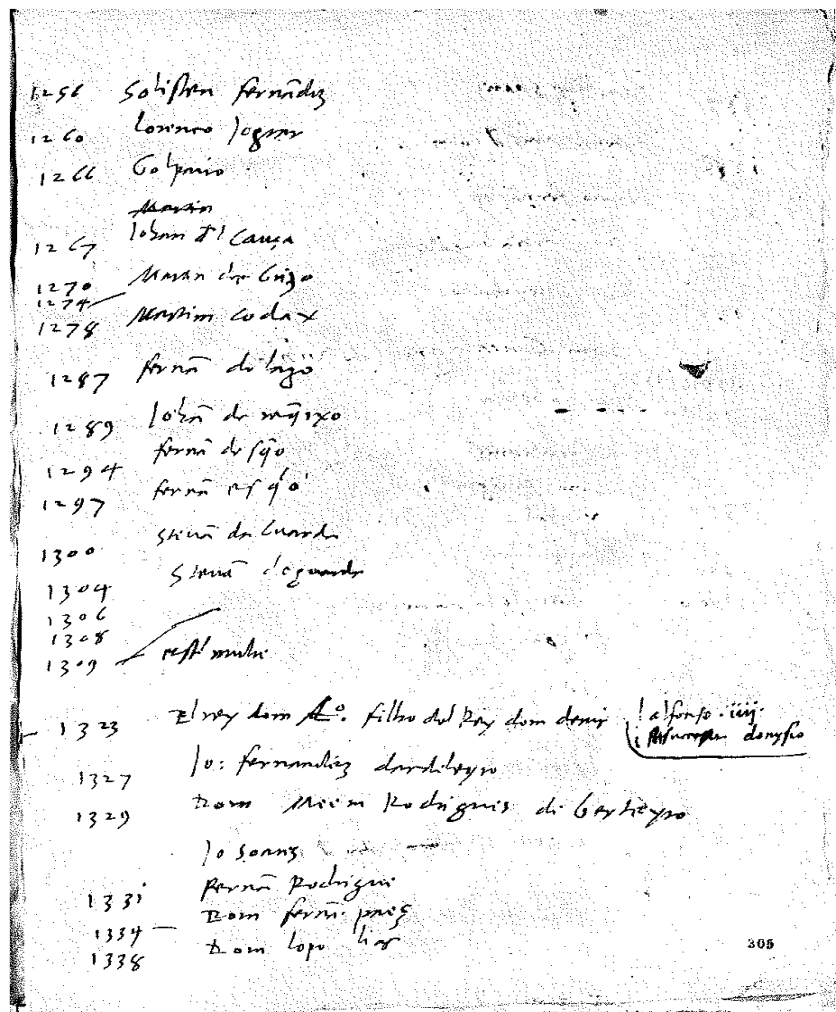 1256 Golistrεu fernãdiz
1260 Lorenço Jograr
1266 Golparro
Martin
1267 Johan d'l Canga
1270 Martin de Grijo
1274
1278 Martim Codax
1287 fernã do lago
1289 Johã de reqixo
1294 fernã de sqo
1297 fernã esqo
1300 Steuã da Guarda
1304 Steuã daguarda
1306
1308
1309
1323 El rey dom A.º filho del Rey dom denis alfonso . iiij .
donysio
1327 Jo: fernandiz dardeleyro
1329 Dom Meem Rodriguis de
Jo Soarez
1331 Fernã Rodrigui
1334 Dom fernã paez
1338 Dom lopo lias
305